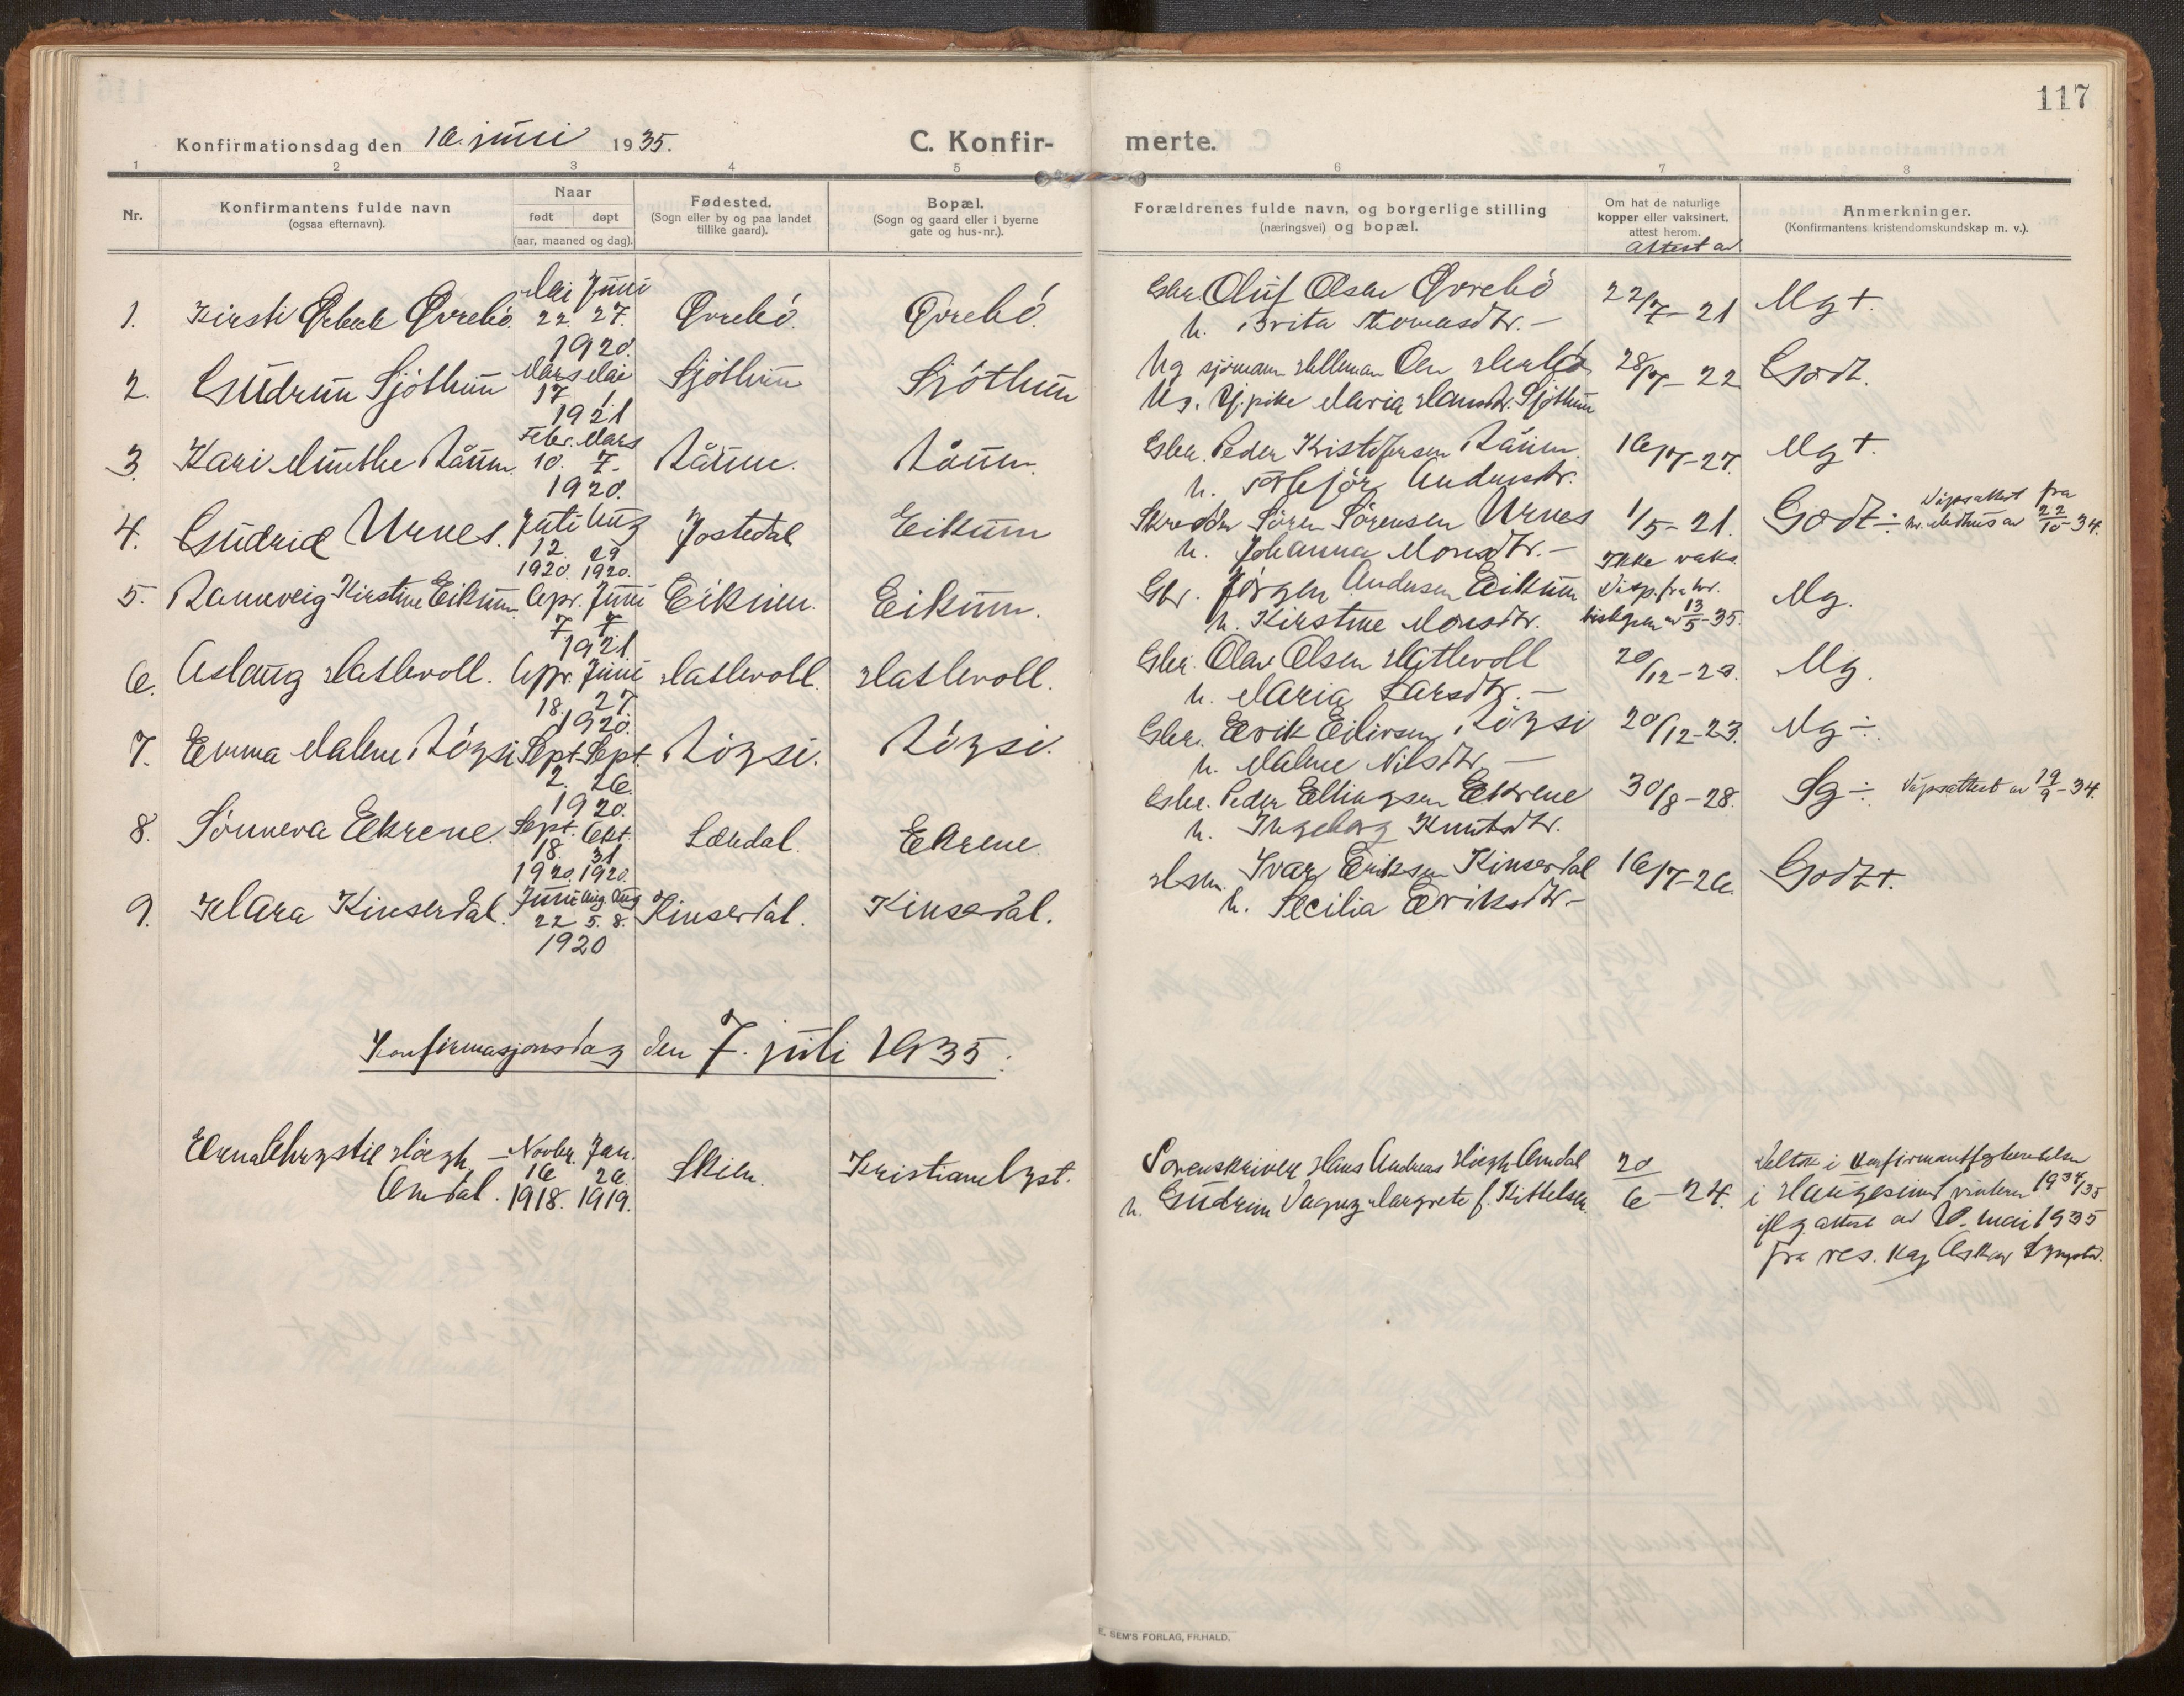 117
Konfirmationsdag den 16. juni 1935.
C. Konfir-
merte.
1 2 3 4 5 6 7 8
Nr.
Konfirmantens fulde navn
(ogsaa efternavn).
Naar
født døpt
(aar, maaned og dag).
Fødested.
(Sogn eller by og paa landet
tillike gaard).
Bopæl.
(Sogn og gaard eller i byerne
gate og hus-nr.).
Forældrenes fulde navn, og borgerlige stilling
(næringsvei) og bopæl.
Om hat de naturlige
kopper eller vaksinert,
attest herom.
Attest av
Anmerkninger.
(Konfirmantens kristendomskundskap m. v.).
Mai Juni
1. Kirsti Øvrebö. 22. 27. Øvrebö. Øvrebö.
1920.
Gbr. Oluf Olsen Øvrebö 22/7-21 Mg+.
h. Brita Thomasdtr. —
Mars Mai
2. Gudrun Sjöthun 17 1. Sjöthun Sjöthun
1921
Ug sjömann Ole 28/7-22 Godt.
Ug. pike Maria Hansdtr. Sjöthun
Febr. Mars
3. Kari Munthe Råum. 10. 7. Råum. Råum.
1920.
Gbr. Peder Kristofersen Råum. 16/7-27. Mg+.
h. Andersdtr.
4. Gudrid Urnes. Juli Aug Jostedal Eikum
12. 29
1920. 1920.
Skredder Sören Sörensen Urnes 1/5-21. Godt÷ Dispattest fra
av 22/10-34.
h. Johanna Monsdtr. —
5. Ranveig Kirstine Eikum. Apr. Juni Eikum. Eikum.
7. 7.
1921
Ikke vaks.
Gbr. Jörgen Andersen Eikum Disp. fra hr. Mg.
h. Kirstine Monsdtr. biskopen av 13/5-35.
6. Aslaug Hatlevoll. Apr. Juni Hatlevoll. Hatlevoll.
18. 27.
1920.
Gbr. Olav Olsen Hatlevoll 20/12-23. Mg.
h. Maria Larsdtr. —
7. Emma Malene Röysi Sept. Sept. Röysi. Röysi.
2. 26.
1920.
Gbr. Erik Eilivsen Röysi 20/12-23. Mg÷.
h. Malene Nilsdtr. —
8. Sönneva Ekrene. Sept. Okt. Lærdal. Ekrene.
18. 31
1920. 1920.
Gbr. Peder Ellingsen Ekrene 30/8-28. Sg÷. Dispattest av 19/9-34.
h. Ingeborg Knutsdtr.
9. Klara Kinserdal. Juni Aug. Aug Kinserdal. Kinserdal.
22 5. 8.
1920
Hsm. Ivar Eriksen Kinserdal 16/7-26. Godt+.
h. Secilia Eriksdtr —
Konfirmasjonsdag den 7. juli 1935.
Erna Høegh — Novbr. Jan. Skien. Kristianelyst.
Omdal. 16 26.
1918. 1919.
Sorenskriver Hans Andreas Høegh Omdal 20/6-24.
h. Gudrun Dagny Margrete f. Kittelsen.
Deltok i konfirmantforberedelsen
i Haugesund vinteren 1934/35
iflg. attest av 10. mai 1935
fra res. kap Oskar Lyngstad.
E. SEM'S FORLAG, FR.HALD.